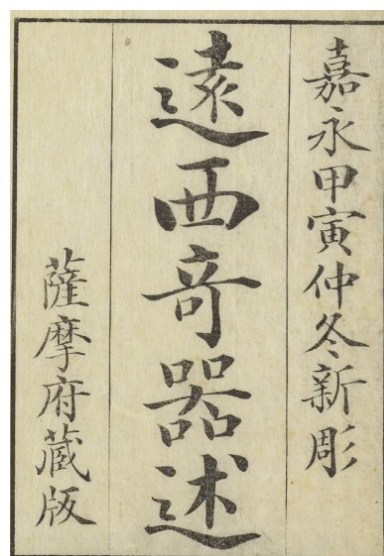 嘉永甲寅仲冬新彫
遠西奇器述
薩摩府蔵版